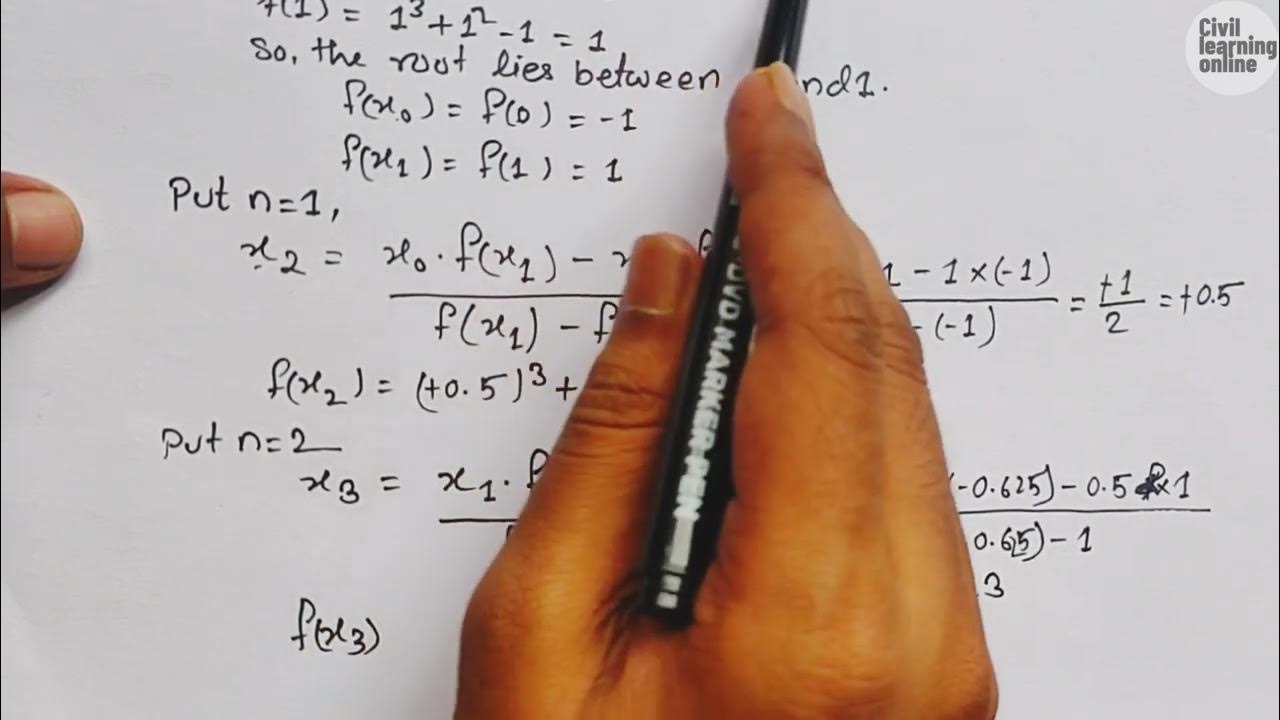 f(1) = 1³ + 1² - 1 = 1
So, the root lies between nd 1.
f(x₀) = f(0) = -1
f(x₁) = f(1) = 1
Put n=1,
x₂ = x₀ · f(x₁) - x f 1 - 1 × (-1) = +1 = +0.5
f(x₁) - f - (-1) 2
f(x₂) = (+0.5)³ +
Put n=2
x₃ = x₁ · f (-0.625) - 0.5 × 1
0.625) - 1
.3
f(x₃)
DVD MARKER PEN
Civil
learning
online